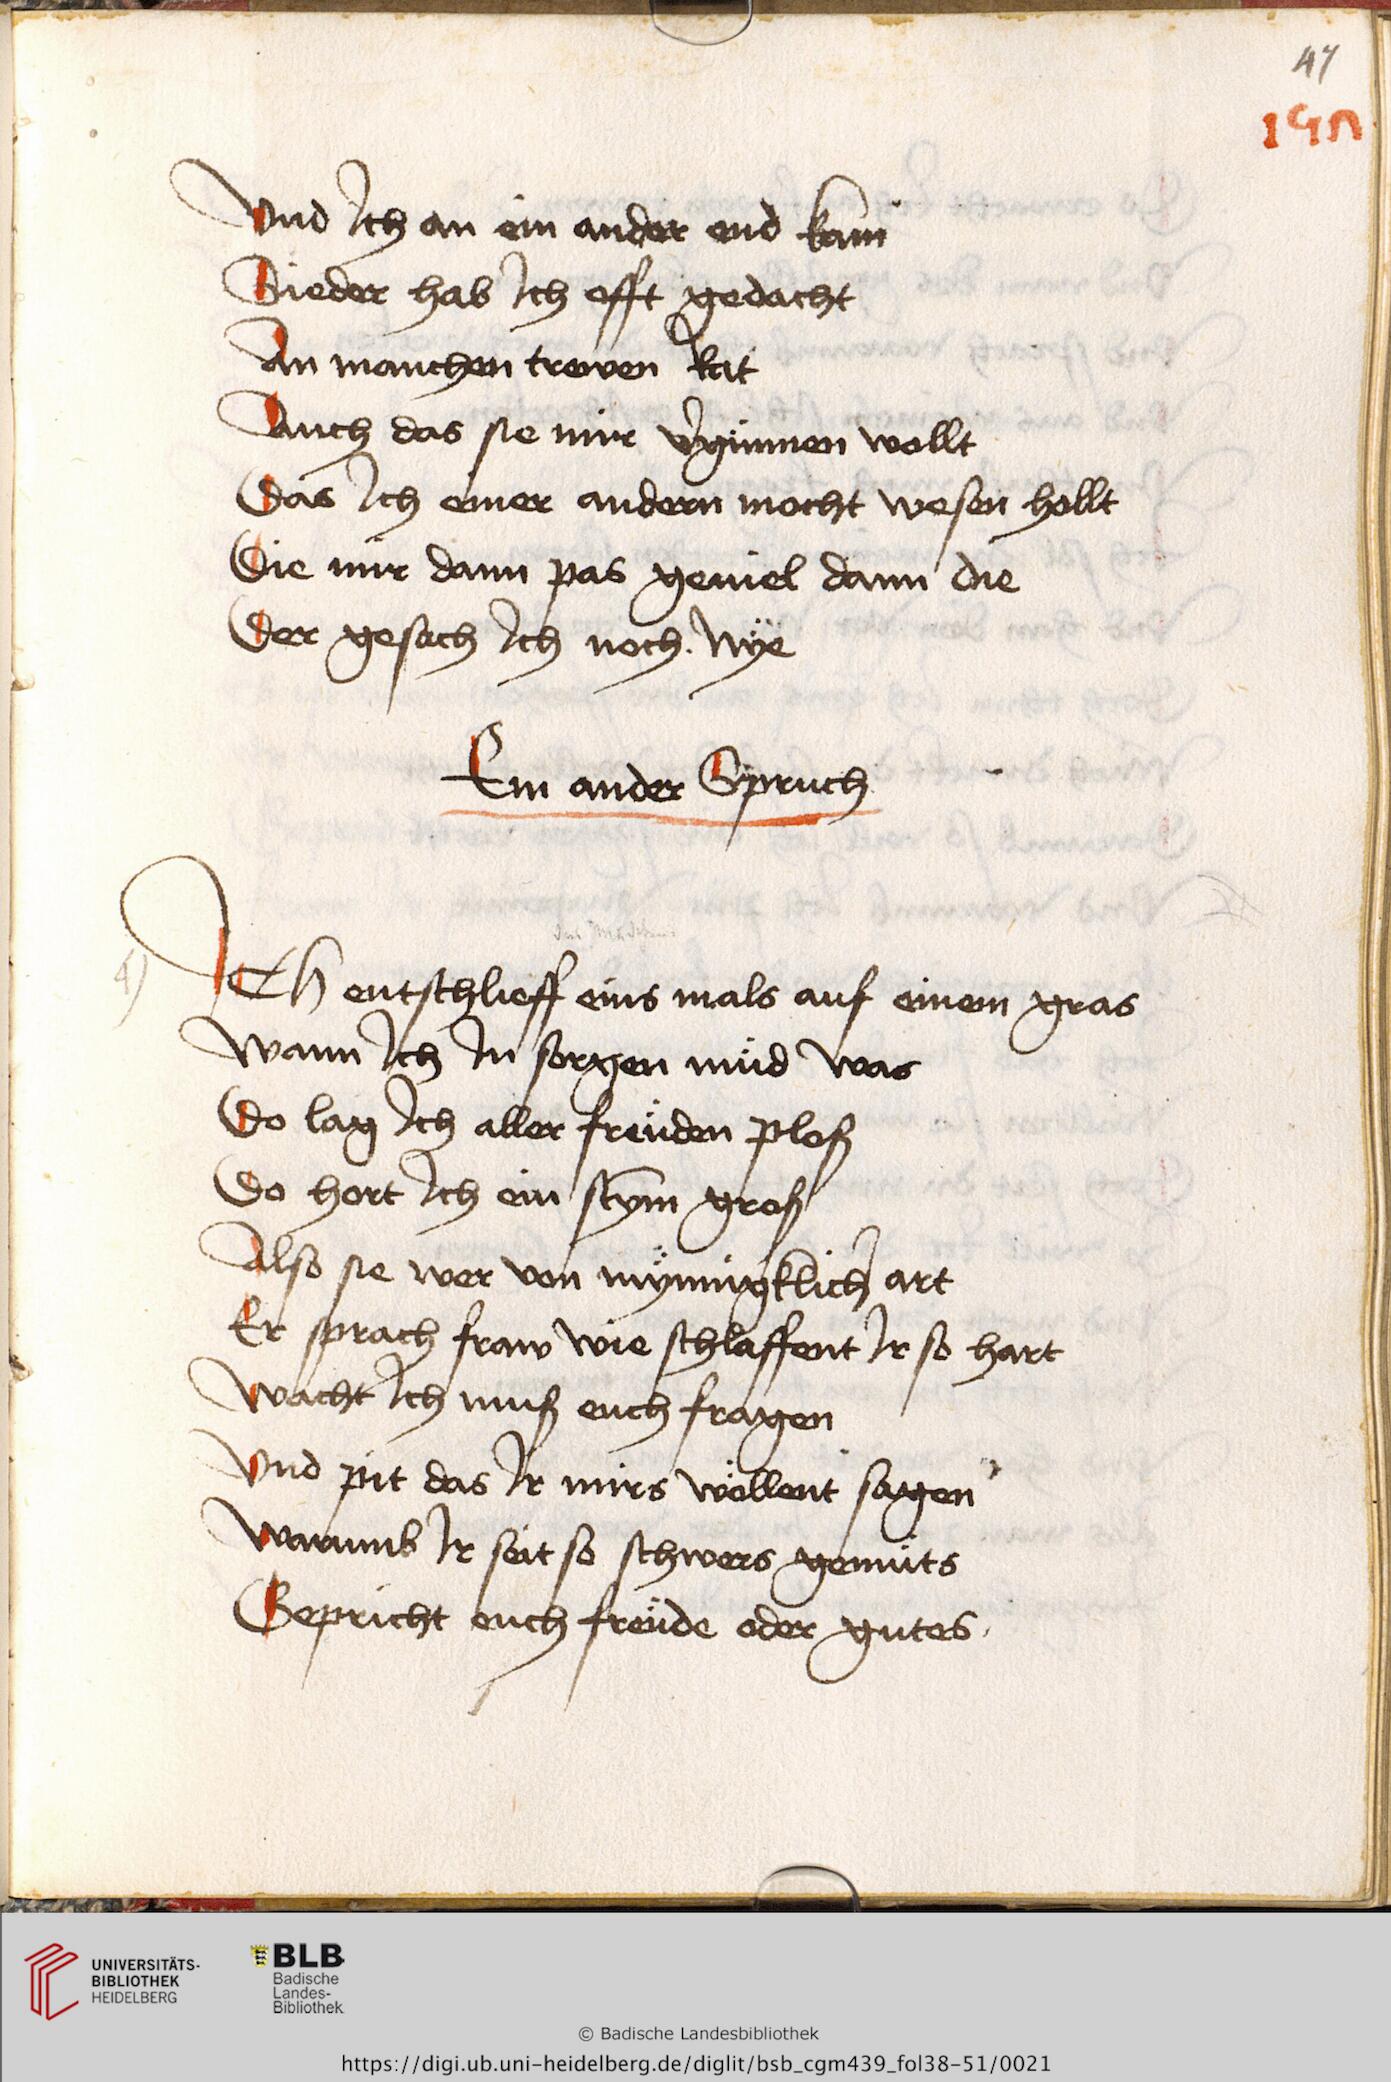 47
197
Vnd Ich an ein ander end kam
Sieder hab Ich offt gedacht
An manchen trewen Rat
Auch das sie mir v'gunnen wollt
Das Ich einer andern mocht wesen hollt
Die mir dann pas geviel dann die
Der gesach Ich noch. Nÿe
Ein ander Spruch
4)
ICh entschlieff eins mals auf einem gras
Wann Ich In sorgen müd was
Do lag Ich aller freüden ploß
Do hort Ich ein stym groß
Also sie wer von mÿnnigklicher art
Er sprach fraw wie schlaffent Ir so hart
Wacht Ich muß euch fragen
Vnd pit das Ir mirs wöllent sagen
Warumb Ir seit so schwers gemüts
Gepricht euch freüde oder gutes.
UNIVERSITÄTS-
BIBLIOTHEK
HEIDELBERG
BLB
Badische
Landes-
Bibliothek
© Badische Landesbibliothek
https://digi.ub.uni-heidelberg.de/diglit/bsb_cgm439_fol38-51/0021